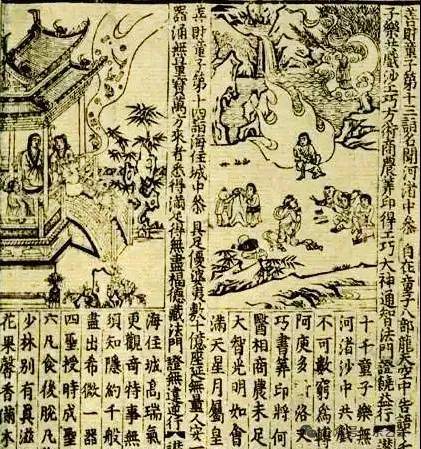 善財童子第十三詣名聞河渚中參 自在童子八部龍天空中告語千
樂共戲沙工巧方術商農筭印得工巧大神通智法門證饒益行
十千童子樂無
河渚沙中共戲
不可數窮為轉
阿庾多 洛叉
巧書筭印將何
醫相商農未足
大智光明如會
滿天星月屬皇
善財童子第十四詣海住城中參 具足優婆夷數十億座莚無量人女一
器涌無量寶萬方來者悉得滿足得無盡福德藏法門 證無違逆行
海住城高瑞氣
更觀奇特事無
須知隱約千般
盡出希微一器
四聖授時成聖
六凡食後脫凡
少林別有真滋
花果馨香備本